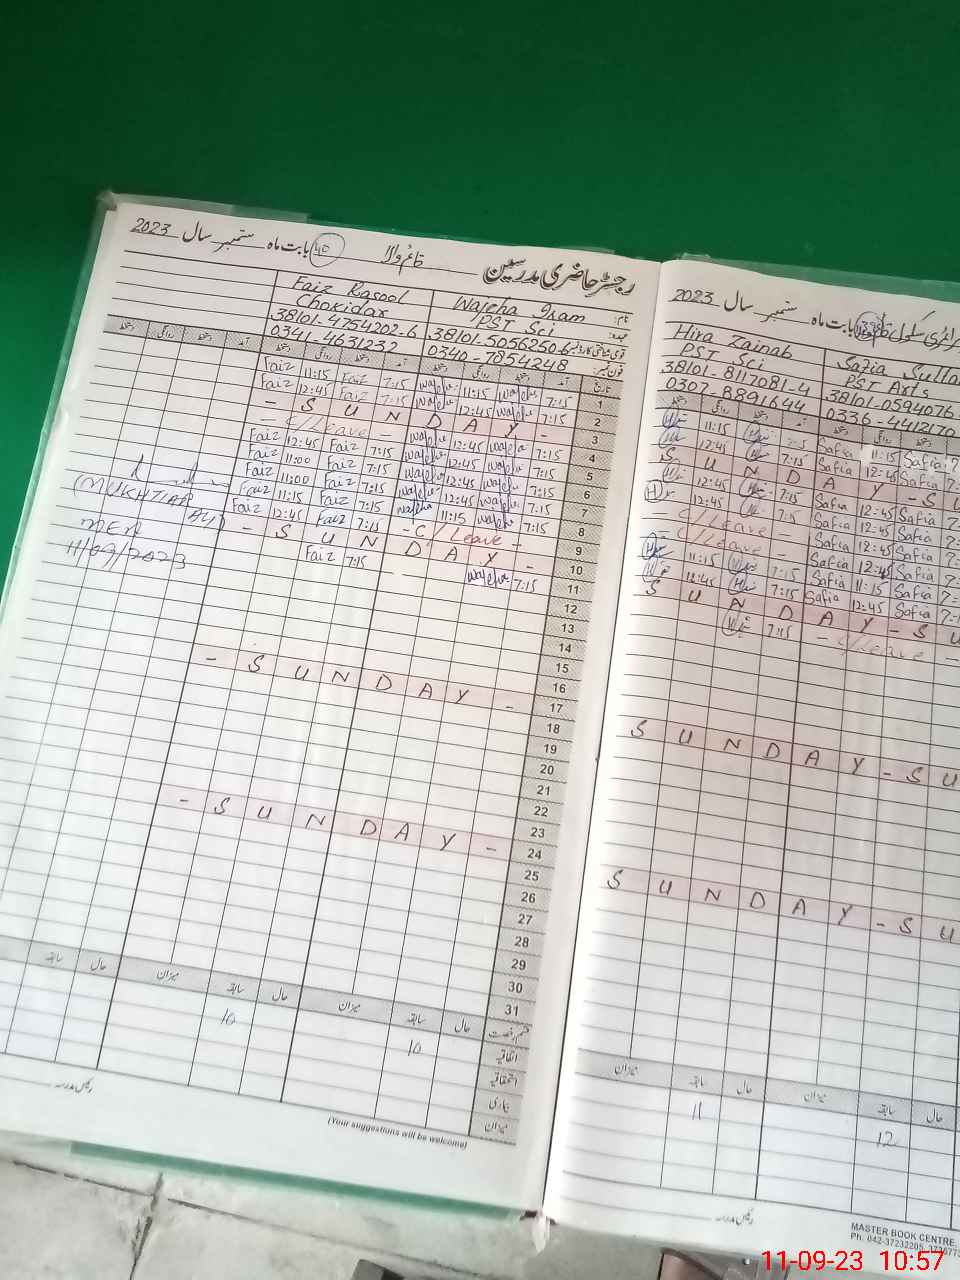 رجسٹر حاضری مدرسین قائم والا 45 بابت ماہ ستمبر سال 2023
نام: Wajeha Ikram Faiz Rasool
عہدہ: PST Sci Chokidar
38101-5056250-6 38101-4754202-6
فون نمبر: 0340-7854248 0341-4631232
تاریخ آمد دستخط روانگی دستخط آمد دستخط روانگی دستخط آمد دستخط روانگی دستخط
1 7:15 Wajeha 11:15 Wajeha 7:15 Faiz 11:15 Faiz
2 7:15 Wajeha 12:45 Wajeha 7:15 Faiz 12:45 Faiz
3 - S U N D A Y -
4 7:15 Wajeha 12:45 Wajeha - C/Leave -
5 7:15 Wajeha 12:45 Wajeha 7:15 Faiz 12:45 Faiz
6 7:15 Wajeha 12:45 Wajeha 7:15 Faiz 11:00 Faiz
7 7:15 Wajeha 12:45 Wajeha 7:15 Faiz 11:00 Faiz
8 7:15 Wajeha 11:15 Wajeha 7:15 Faiz 11:15 Faiz
9 - C/Leave - 7:15 Faiz 12:45 Faiz
10 - S U N D A Y -
11 7:15 Wajeha 7:15 Faiz
12
13
14
15
16
17 - S U N D A Y -
18
19
20
21
22
23
24 - S U N D A Y -
25
26
27
28
29
30
31
MUKHTIAR ALI
MEA
11/09/2023
قسم رخصت حال سابقہ میزان حال سابقہ میزان حال سابقہ
اتفاقیہ 10 10
استحقاقیہ
بیماری
میزان
رئیس مدرسہ
(Your suggestions will be welcome)
بابت ماہ ستمبر سال 2023
Hira Zainab Safia Sulta
PST Sci PST Arts
38101-817081-4 38101-0594076-
0307-8891644 0336-4412170
7:15 11:15 Safia 11:15 Safia
7:15 12:45 Safia 12:45 Safia
S U N D A Y - S U
7:15 12:45 Safia 12:45 Safia
7:15 12:45 Safia 12:45 Safia
- C/Leave - Safia 12:45 Safia
- C/Leave - Safia 12:45 Safia
7:15 11:15 Safia 11:15 Safia
7:15 12:45 Safia 12:45 Safia
S U N D A Y - S U
7:15 - C/Leave -
S U N D A Y - S U
S U N D A Y - S U
حال سابقہ میزان حال سابقہ میزان
12 11
رئیس مدرسہ
MASTER BOOK CENTRE,
Ph. 042-37232205,
11-09-23 10:57